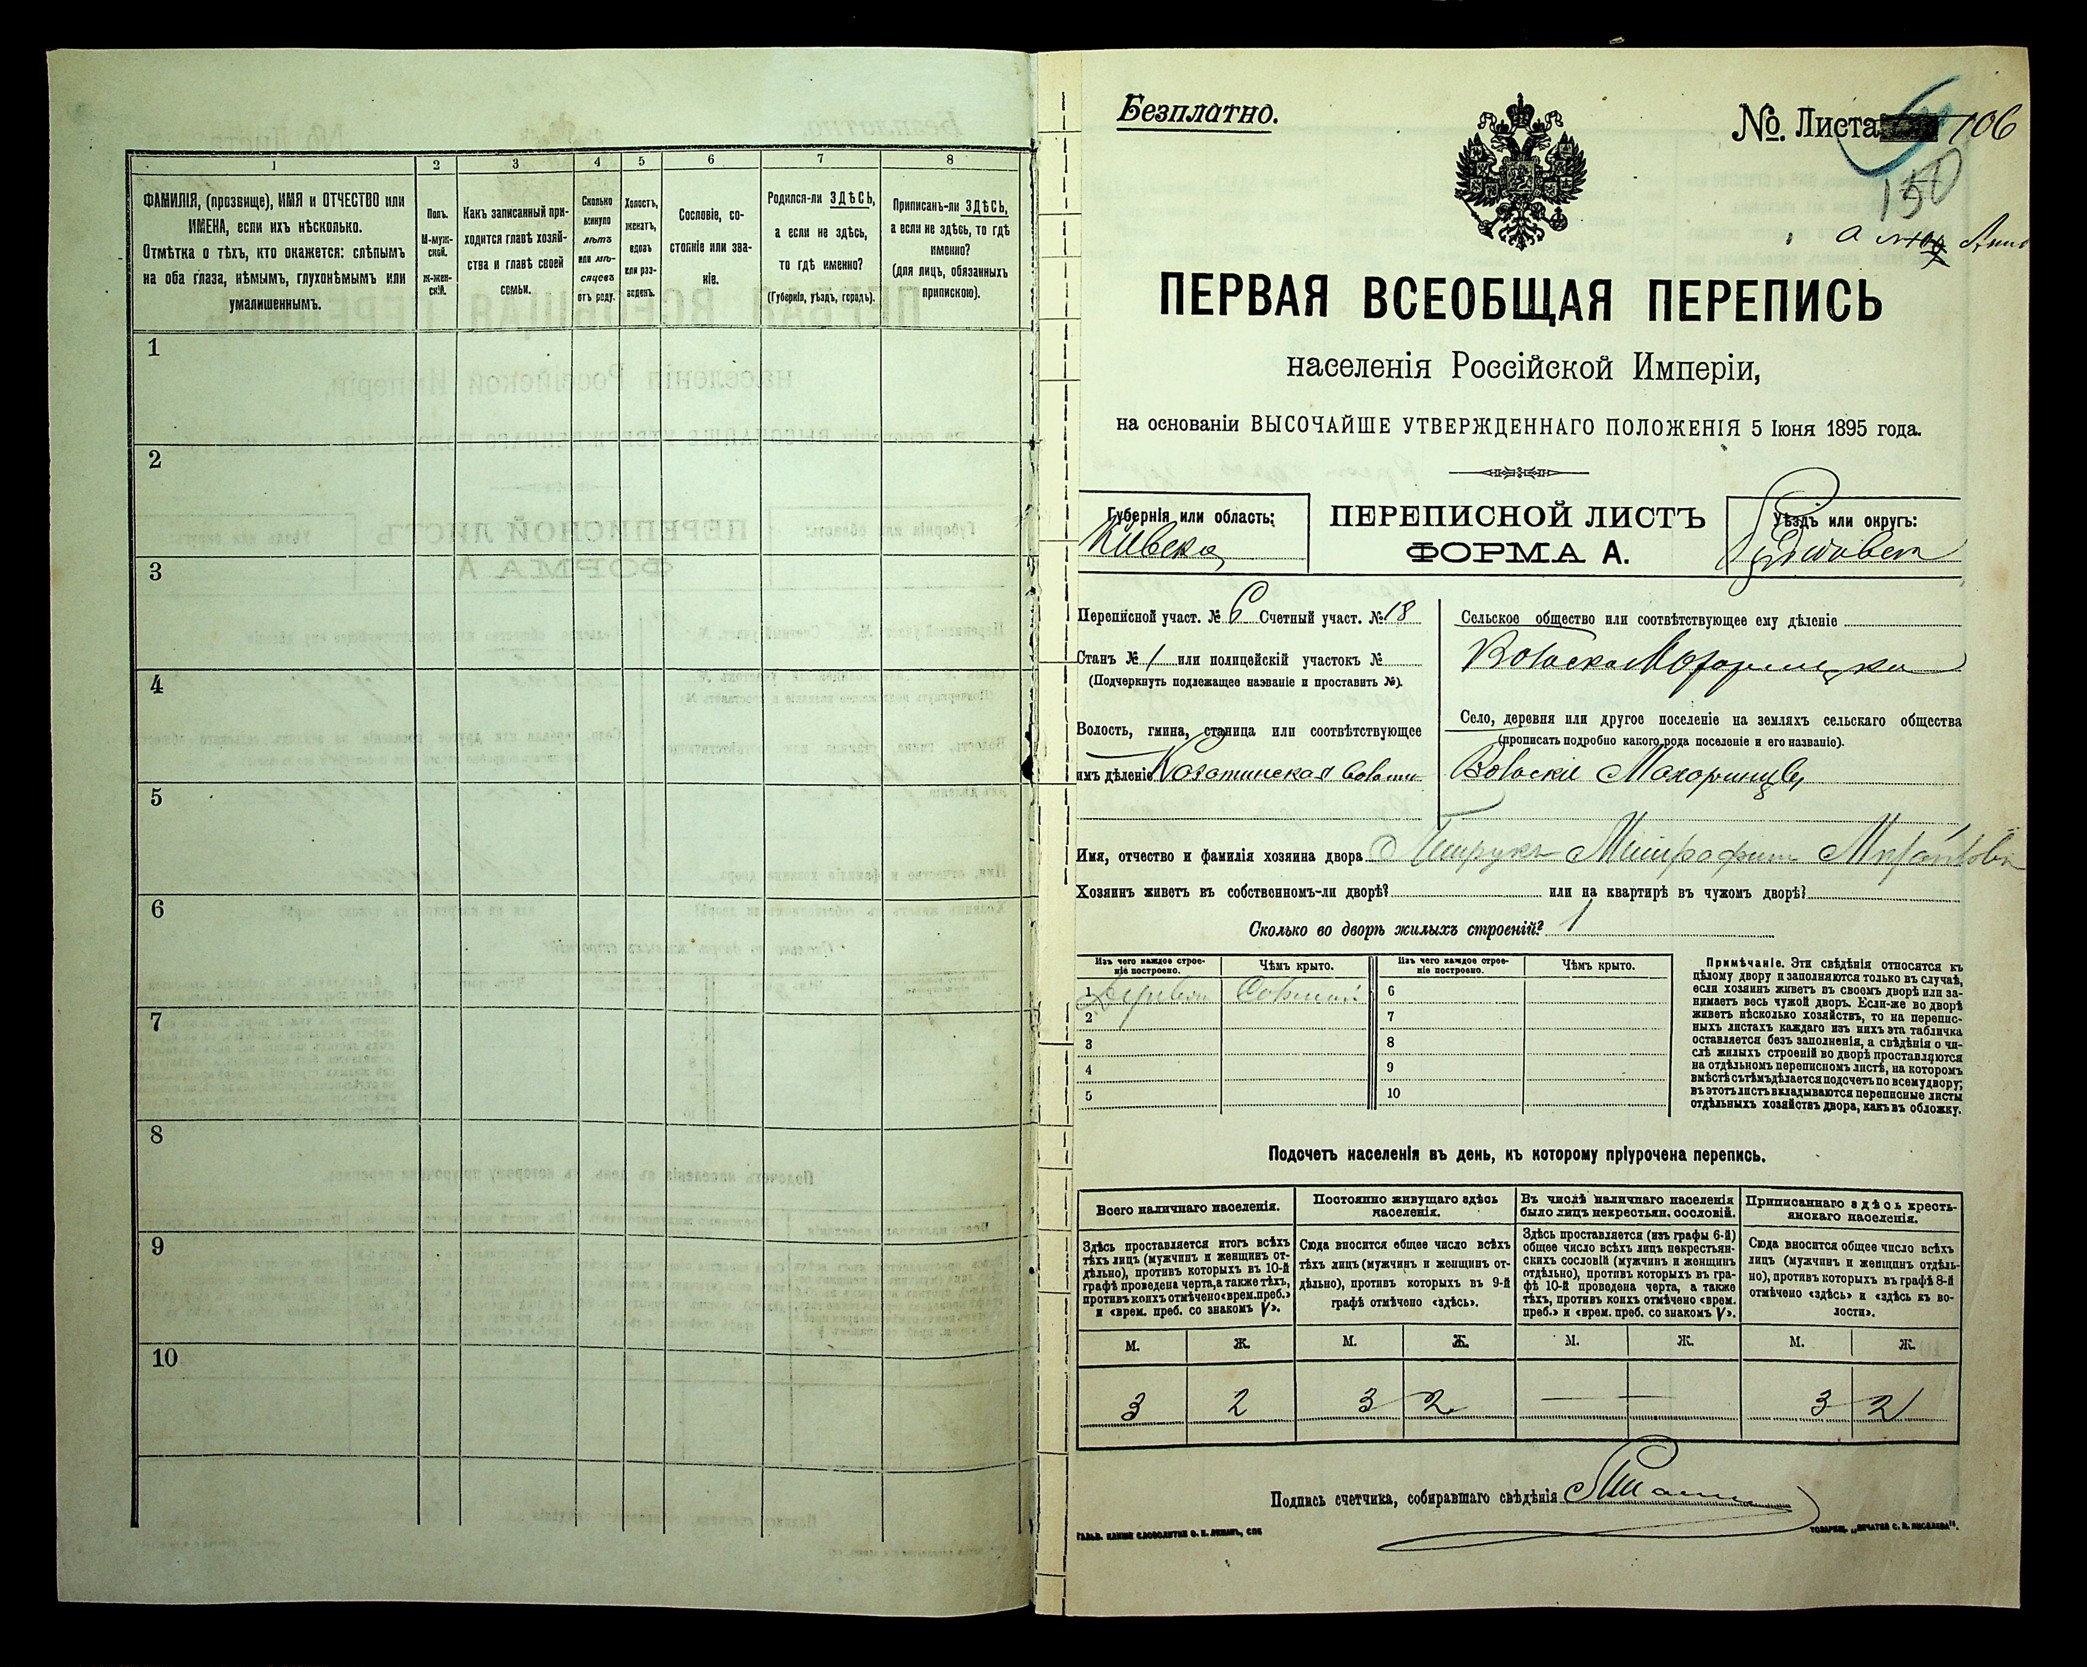 1
2
3
4
5
6
7
8
ФАМИЛІЯ, (прозвище), ИМЯ и ОТЧЕСТВО или
ИМЕНА, если ихъ нѣсколько.
Отмѣтка о тѣхъ, кто окажется: слѣпымъ
на оба глаза, нѣмымъ, глухонѣмымъ или
умалишеннымъ.
Полъ.
М-муж-
ской.
Ж-жен-
скій.
Какъ записанный при-
ходится главѣ хозяй-
ства и главѣ своей
семьи.
Сколько
минуло
лѣтъ
или мѣ-
сяцевъ
отъ роду.
Холостъ,
женатъ,
вдовъ
или раз-
веденъ.
Сословіе, со-
стояніе или зва-
ніе.
Родился-ли ЗДѢСЬ,
а если не здѣсь,
то гдѣ именно?
(Губернія, уѣздъ, городъ).
Приписанъ-ли ЗДѢСЬ,
а если не здѣсь, то гдѣ
именно?
(для лицъ, обязанныхъ
припискою).
1
2
3
4
5
6
7
8
9
10
Безплатно.
№ Листа 106
150
ПЕРВАЯ ВСЕОБЩАЯ ПЕРЕПИСЬ
населенія Россійской Имперіи,
на основаніи ВЫСОЧАЙШЕ УТВЕРЖДЕННАГО ПОЛОЖЕНІЯ 5 Іюня 1895 года.
Губернія или область:
Кіевска
ПЕРЕПИСНОЙ ЛИСТЪ
ФОРМА А.
Уѣздъ или округъ:
Переписной участ. № 6 Счетный участ. № 18
Станъ № 1 или полицейскій участокъ №
(Подчеркнуть подлежащее названіе и проставить №).
Волость, гмина, станица или соотвѣтствующее
имъ дѣленіе Козатинская
Сельское общество или соотвѣтствующее ему дѣленіе
Село, деревня или другое поселеніе на земляхъ сельскаго общества
(прописать подробно какого рода поселеніе и его названіе).
Имя, отчество и фамилія хозяина двора
Хозяинъ живетъ въ собственномъ-ли дворѣ? или на квартирѣ въ чужомъ дворѣ?
Сколько во дворѣ жилыхъ строеній? 1
Изъ чего каждое строе-
ніе построено.
Чѣмъ крыто.
Изъ чего каждое строе-
ніе построено.
Чѣмъ крыто.
1
2
3
4
5
6
7
8
9
10
Примѣчаніе. Эти свѣдѣнія относятся къ
цѣлому двору и заполняются только въ случаѣ,
если хозяинъ живетъ въ своемъ дворѣ или за-
нимаетъ весь чужой дворъ. Если-же во дворѣ
живетъ нѣсколько хозяйствъ, то на перепис-
ныхъ листахъ каждаго изъ нихъ эта табличка
оставляется безъ заполненія, а свѣдѣнія о чи-
слѣ жилыхъ строеній во дворѣ проставляются
на отдѣльномъ переписномъ листѣ, на которомъ
вмѣстѣ съ тѣмъ дѣлается подсчетъ по всему двору;
въ этотъ листъ вкладываются переписные листы
отдѣльныхъ хозяйствъ двора, какъ въ обложку.
Подсчетъ населенія въ день, къ которому пріурочена перепись.
Всего наличнаго населенія.
Постоянно живущаго здѣсь
населенія.
Въ числѣ наличнаго населенія
было лицъ некрестьян. сословій.
Приписаннаго здѣсь кресть-
янскаго населенія.
Здѣсь проставляется итогъ всѣхъ
тѣхъ лицъ (мужчинъ и женщинъ от-
дѣльно), противъ которыхъ въ 10-й
графѣ проведена черта, а также тѣхъ,
противъ коихъ отмѣчено «врем. преб.»
и «врем. преб. со знакомъ V».
Сюда вносится общее число всѣхъ
тѣхъ лицъ (мужчинъ и женщинъ от-
дѣльно), противъ которыхъ въ 9-й
графѣ отмѣчено «здѣсь».
Здѣсь проставляется (изъ графы 6-й)
общее число всѣхъ лицъ некрестьян-
скихъ сословій (мужчинъ и женщинъ
отдѣльно), противъ которыхъ въ гра-
фѣ 10-й проведена черта, а также
тѣхъ, противъ коихъ отмѣчено «врем.
преб.» и «врем. преб. со знакомъ V».
Сюда вносится общее число всѣхъ
лицъ (мужчинъ и женщинъ отдѣль-
но), противъ которыхъ въ графѣ 8-й
отмѣчено «здѣсь» и «здѣсь къ во-
лости».
М. Ж. М. Ж. М. Ж. М. Ж.
3 2 3 2 — — 3 2
Подпись счетчика, собиравшаго свѣдѣнія
ГАЛЬВ. КЛИШЕ СЛОВОЛИТНИ О. И. ЛЕМАНЪ, СПБ
ТОВАРИЩ. „ПЕЧАТНЯ С. П. ЯКОВЛЕВА".